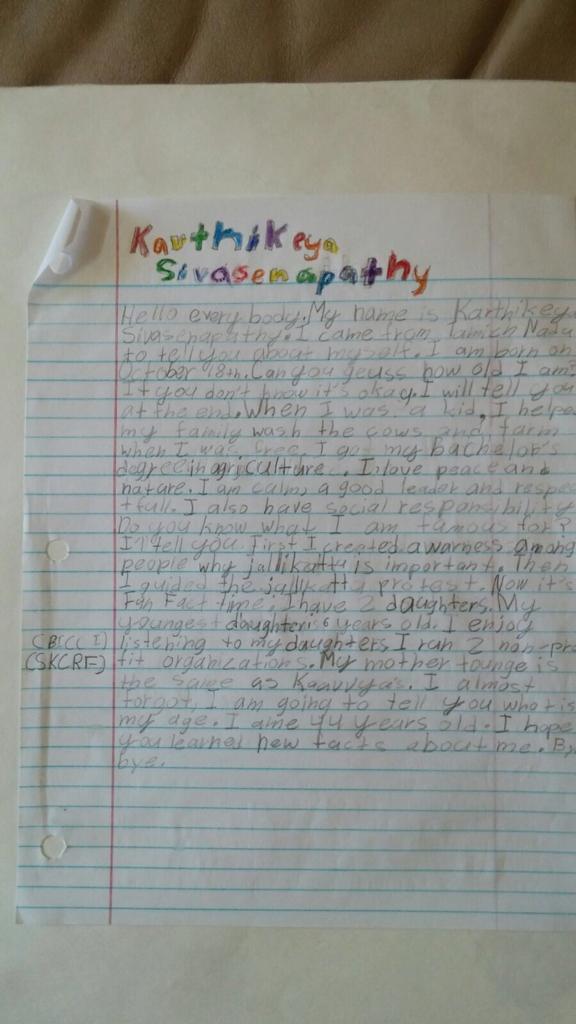 Karthikeya
Sivasenapathy
Hello everybody. My name is Karthikey
Sivasenapathy. I came from Tamich Nadu
to tell you about myself. I am born on
October 18th. Can you geuss how old I am?
If you don't know it's okay. I will tell you
at the end. When I was a kid, I helpe
my family wash the cows and farm
when I was free. I got my bachelor's
degree in agriculture. I love peace and
nature. I am calm, a good leader and respec
tfull. I also have social responsibility
Do you know what I am famous for?
I'll tell you. First I created awarness among
people why jallikattu is important. Then
I guided the jallikattu protest. Now it's
Fun Fact time. I have 2 daughters. My
youngest daughter is 6 years old. I enjoy
(BICCI) listening to my daughters. I run 2 non-pro
(SKCRF) fit organizations. My mother tounge is
the same as Kaavvya's. I almost
forgot, I am going to tell you what is
my age. I ame 44 years old. I hope
you learned new facts about me. By
bye.